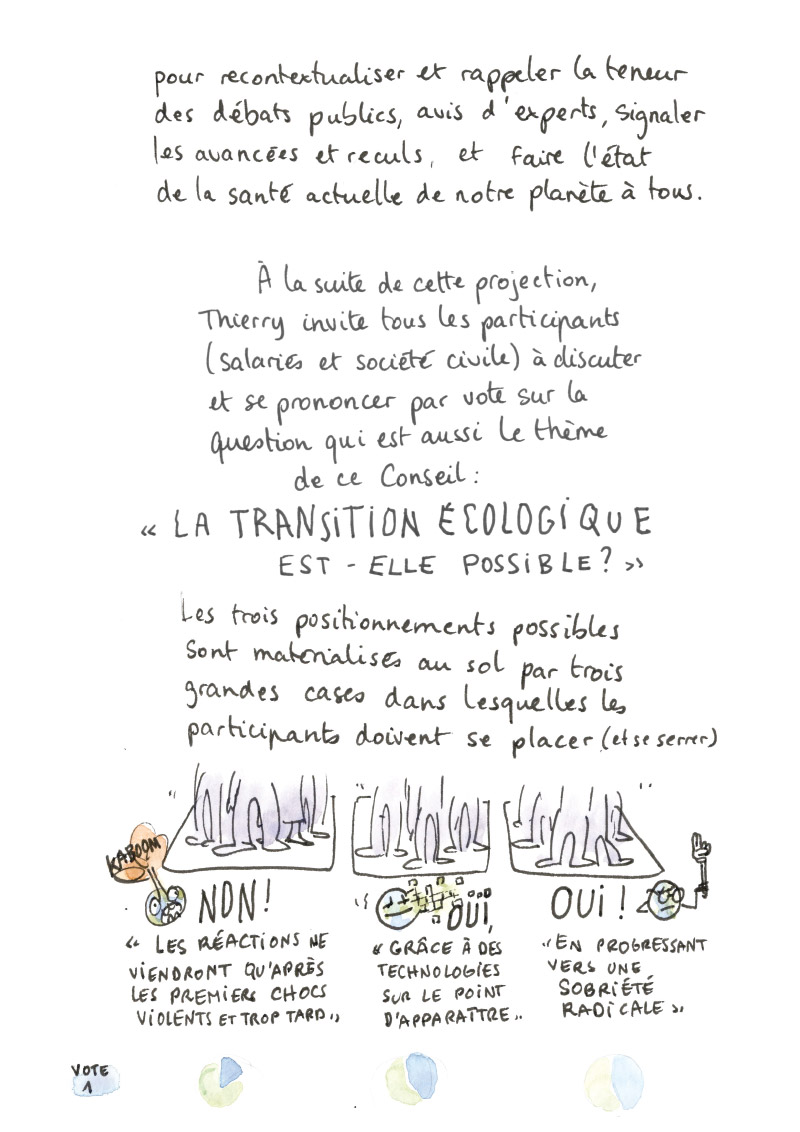 pour recontextualiser et rappeler la teneur
des débats publics, avis d'experts, signaler
les avancées et reculs, et faire l'état
de la santé actuelle de notre planète à tous.
À la suite de cette projection,
Thierry invite tous les participants
(salariés et société civile) à discuter
et se prononcer par vote sur la
question qui est aussi le thème
de ce Conseil :
« LA TRANSITION ÉCOLOGIQUE
EST-ELLE POSSIBLE ? »
Les trois positionnements possibles
sont matérialisés au sol par trois
grandes cases dans lesquelles les
participants doivent se placer (et se serrer)
KABOOM
NON !
« LES RÉACTIONS NE
VIENDRONT QU'APRÈS
LES PREMIERS CHOCS
VIOLENTS ET TROP TARD »
OUI,
« GRÂCE À DES
TECHNOLOGIES
SUR LE POINT
D'APPARAÎTRE »
OUI !
« EN PROGRESSANT
VERS UNE
SOBRIÉTÉ
RADICALE »
VOTE
1